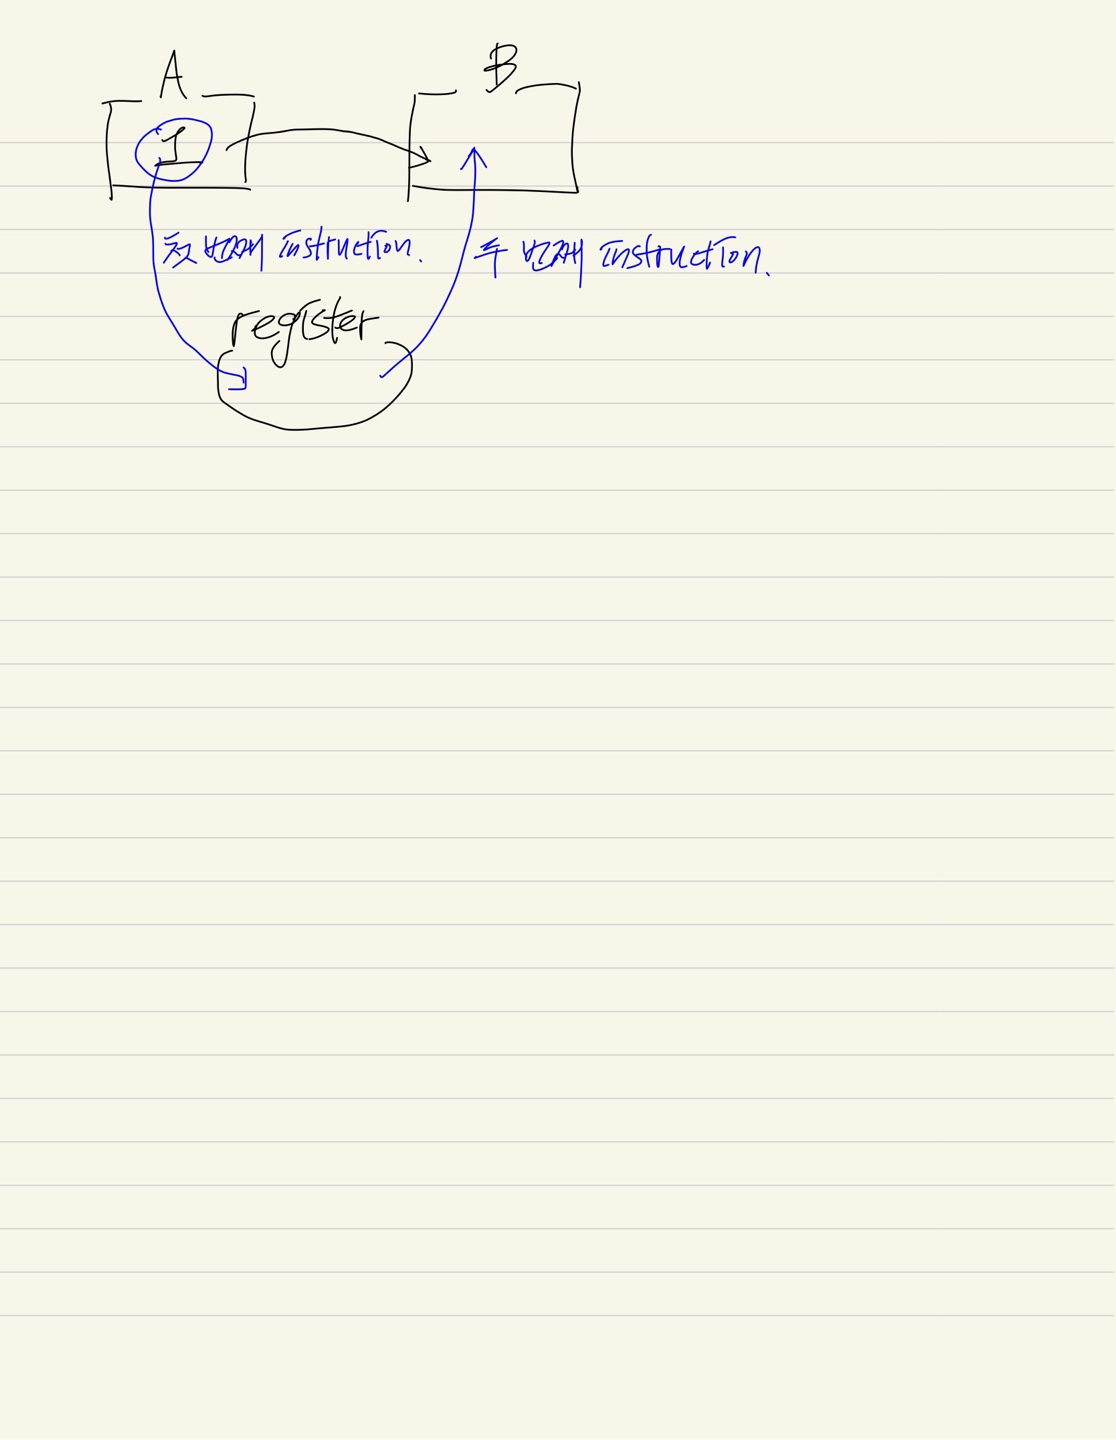 A
B
1
첫 번째 instruction.
두 번째 instruction.
register